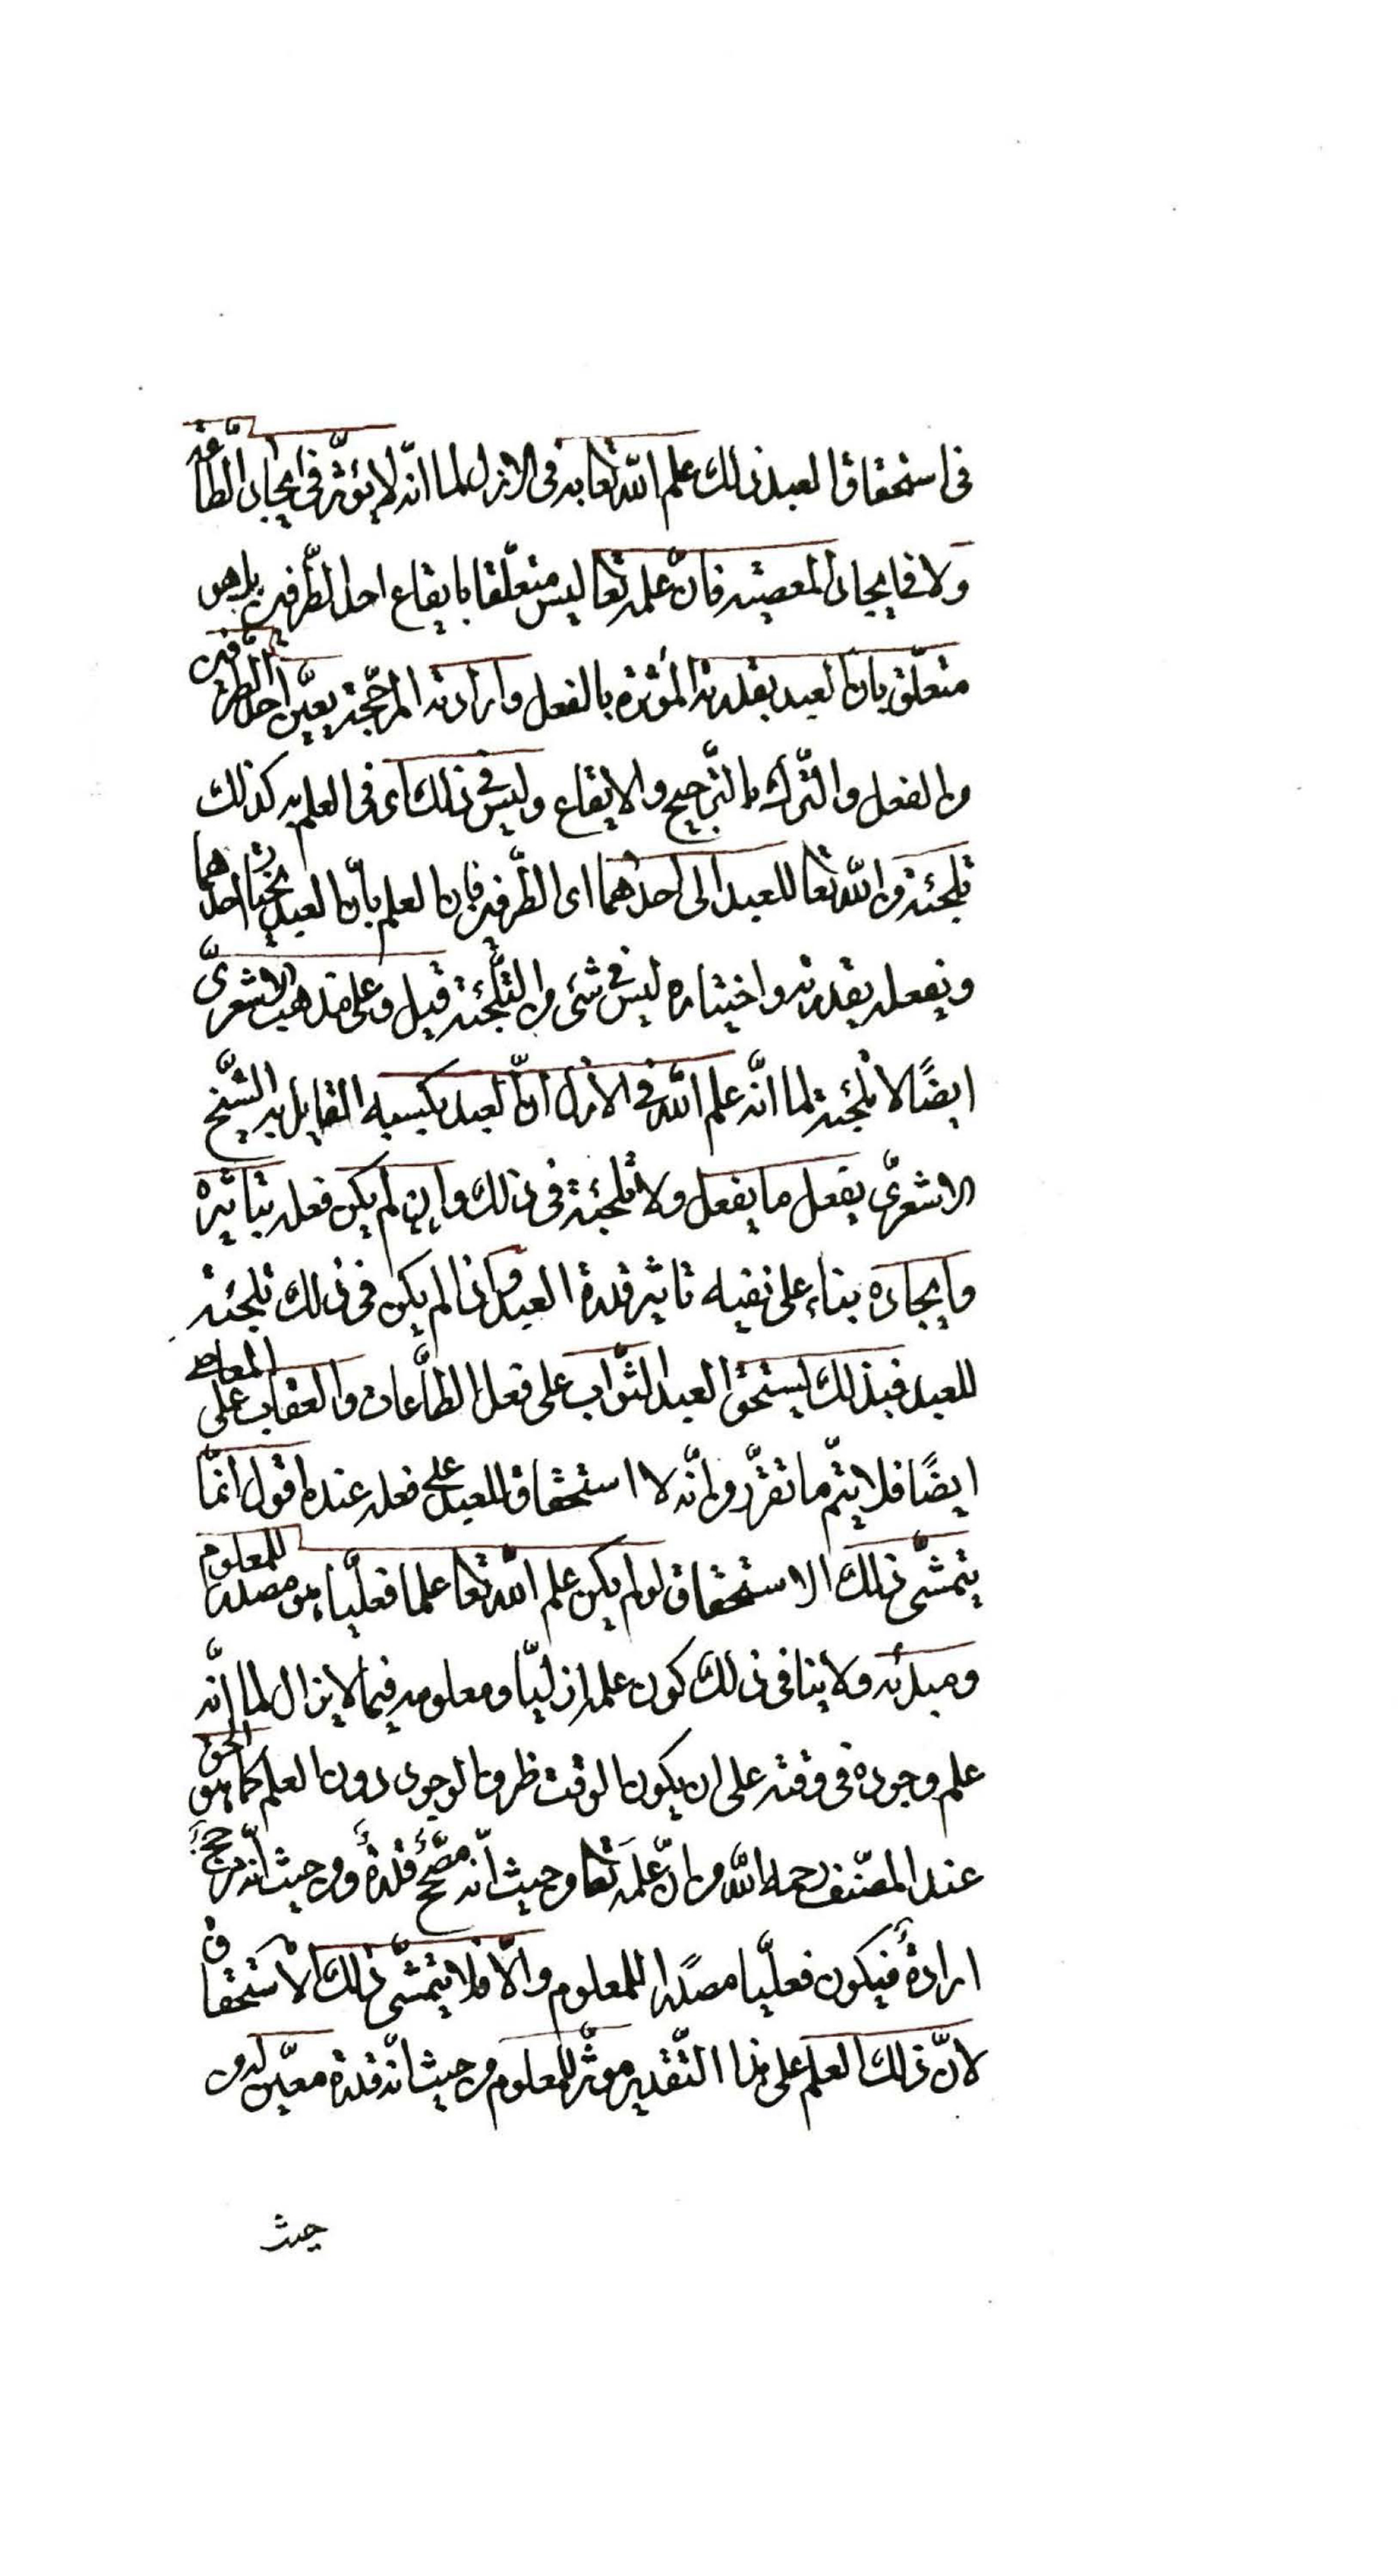 فى استحقاق العبد ذلك علم الله تعا به فى الازل لما انّه لا يؤثّر فى ايجاب الطّاعة
ولا فى ايجاب المعصية فانّ علمه تعا ليس متعلّقا بايقاع احد الطّرفين بل هو
متعلّق بان العبد بقدرته المؤثرة بالفعل وارادته المرجّحة يعيّن احد الطرفين
من الفعل والتّرك بالتّرجيح والايقاع وليس فى ذلك اى فى العلم به كذلك
تلجئة من الله تعا للعبد الى احدهما اى الطّرفين فان العلم بانّ العبد يختار احدهما
ويفعله بقدرته واختياره ليس فى شئ من التّلجئة قيل وعلى مذهب الاشعرىّ
ايضًا لا تلجئة لما انّه علم الله فى الازل انّ العبد بكسبه القايل به الشّيخ
الاشعرىّ يفعل ما يفعل ولا تلجئة فى ذلك وان لم يكن فعله بتاثيره
وايجاده بناء على نفيه تاثير قدرة العبد واذا لم يكن فى ذلك تلجئة
للعبد فبذلك يستحق العبد الثّواب على فعل الطّاعات والعقاب على المعاصى
ايضًا فلا يتمّ ما تقرّر من انّه لا استحقاق للعبد على فعله عنده اقول انّما
يتمشّى ذلك الاستحقاق لو لم يكن علم الله تعا علما فعليّا هو مصدر للمعلوم
ومبدئه ولا ينافى ذلك كون علمه ازليّا ومعلومه فيما لا يزال لما انّه
علم وجوده فى وقته على ان يكون الوقت ظرف الوجود دون العلم كما هو الحق
عند المصنّف رحمه الله من انّ علمَه تعا من حيث انّه مصّحح قدرةٌ ومن حيث انّه مرجّح
ارادةٌ فيكون فعليّا مصدرًا للمعلوم والّا فلا يتمشّى ذلك الاستحقاق
لانّ ذلك العلم على هذا التّقدير موثّر للمعلوم من حيث انّه قدرة معيّن له من
حيث